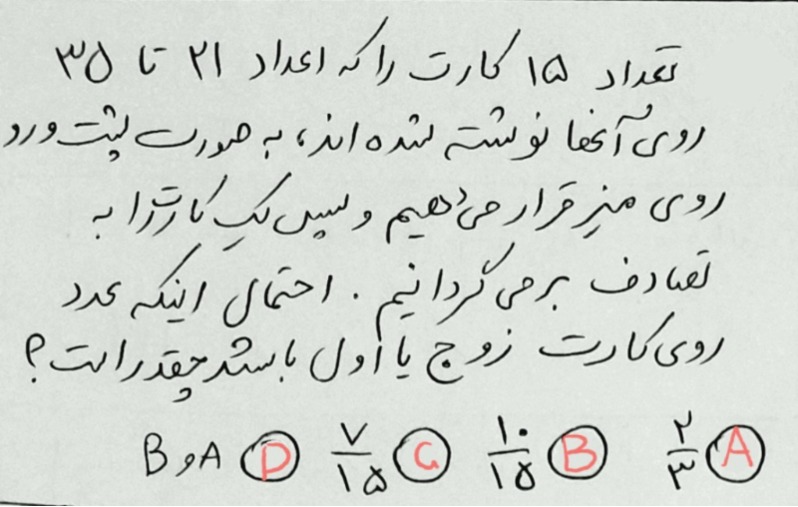 تعداد ۱۵ کارت را که اعداد ۲۱ تا ۳۵
روی آنها نوشته شده اند، به صورت پشت و رو
روی میز قرار می‌دهیم و سپس یک کارت را به
تصادف برمی‌گردانیم. احتمال اینکه عدد
روی کارت زوج یا اول باشد چقدر است؟
A ۲/۳ B ۱۰/۱۵ C ۷/۱۵ D A و B